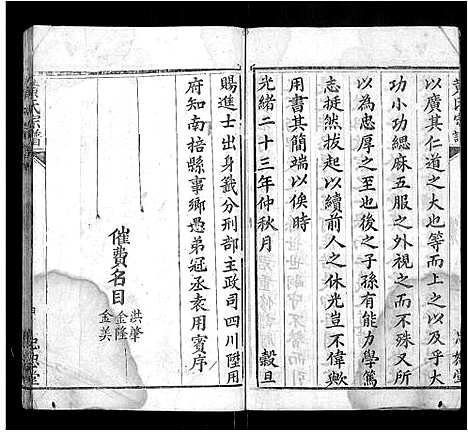 以廣其仁道之大也等而上之以于大
功小功緦麻五服之外視之而不殊又所
以為忠厚之至也後之子孫有能力學篤
志挺然拔起以續前人之休光豈不偉歟
用書其簡端以俟時
光緒二十三年仲秋月 穀旦
賜進士出身籤分刑部主政司四川陞用
府知南掊縣事鄉愚弟冠丞袁用賓序
催費名目
洪肇
金隆
金美
黃氏宗譜